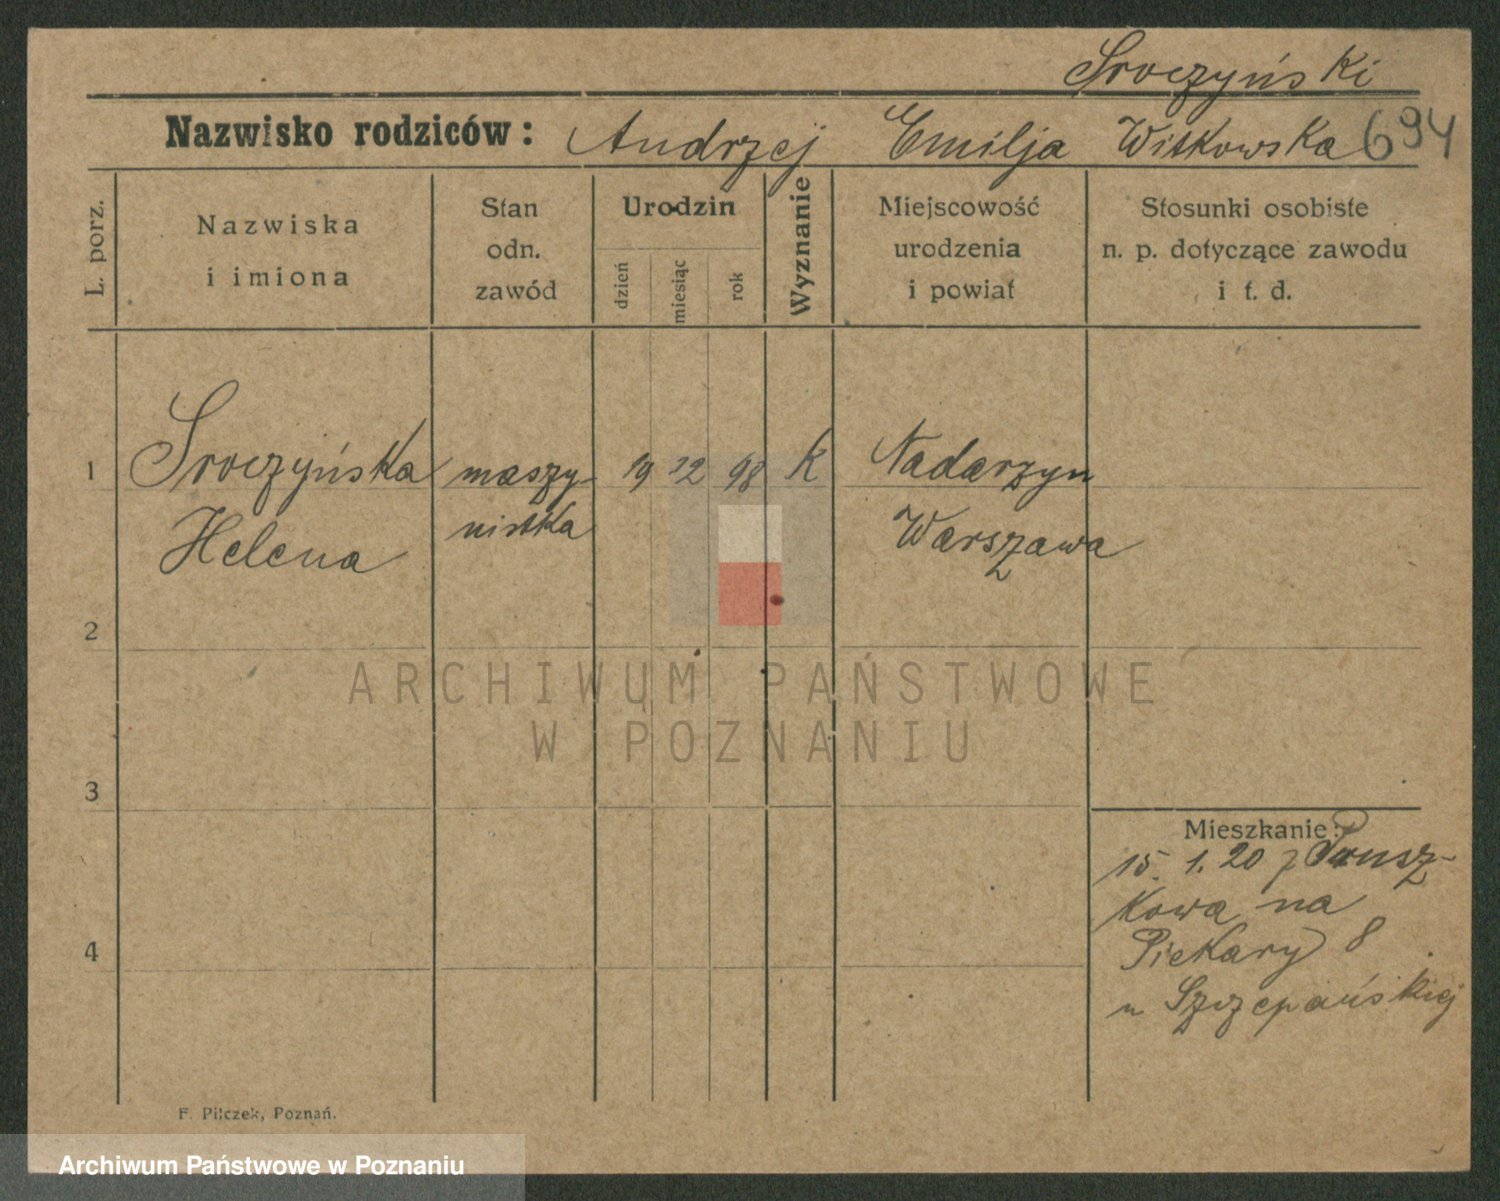 Sroczyński
Nazwisko rodziców: Andrzej Emilja Witkowska 694
L. porz.
Nazwiska
i imiona
Stan
odn.
zawód
Urodzin
dzień
miesiąc
rok
Wyznanie
Miejscowość
urodzenia
i powiat
Stosunki osobiste
n. p. dotyczące zawodu
i t. d.
1
Sroczyńska
Helena
maszy-
nistka
19 12 98 K
Nadarzyn
Warszawa
2
3
4
Mieszkanie:
15. 1. 20 z Prusz-
kowa na
Piekary 8
u Szczepańskiej
F. Pilczek, Poznań.
ARCHIWUM PAŃSTWOWE
W POZNANIU
Archiwum Państwowe w Poznaniu